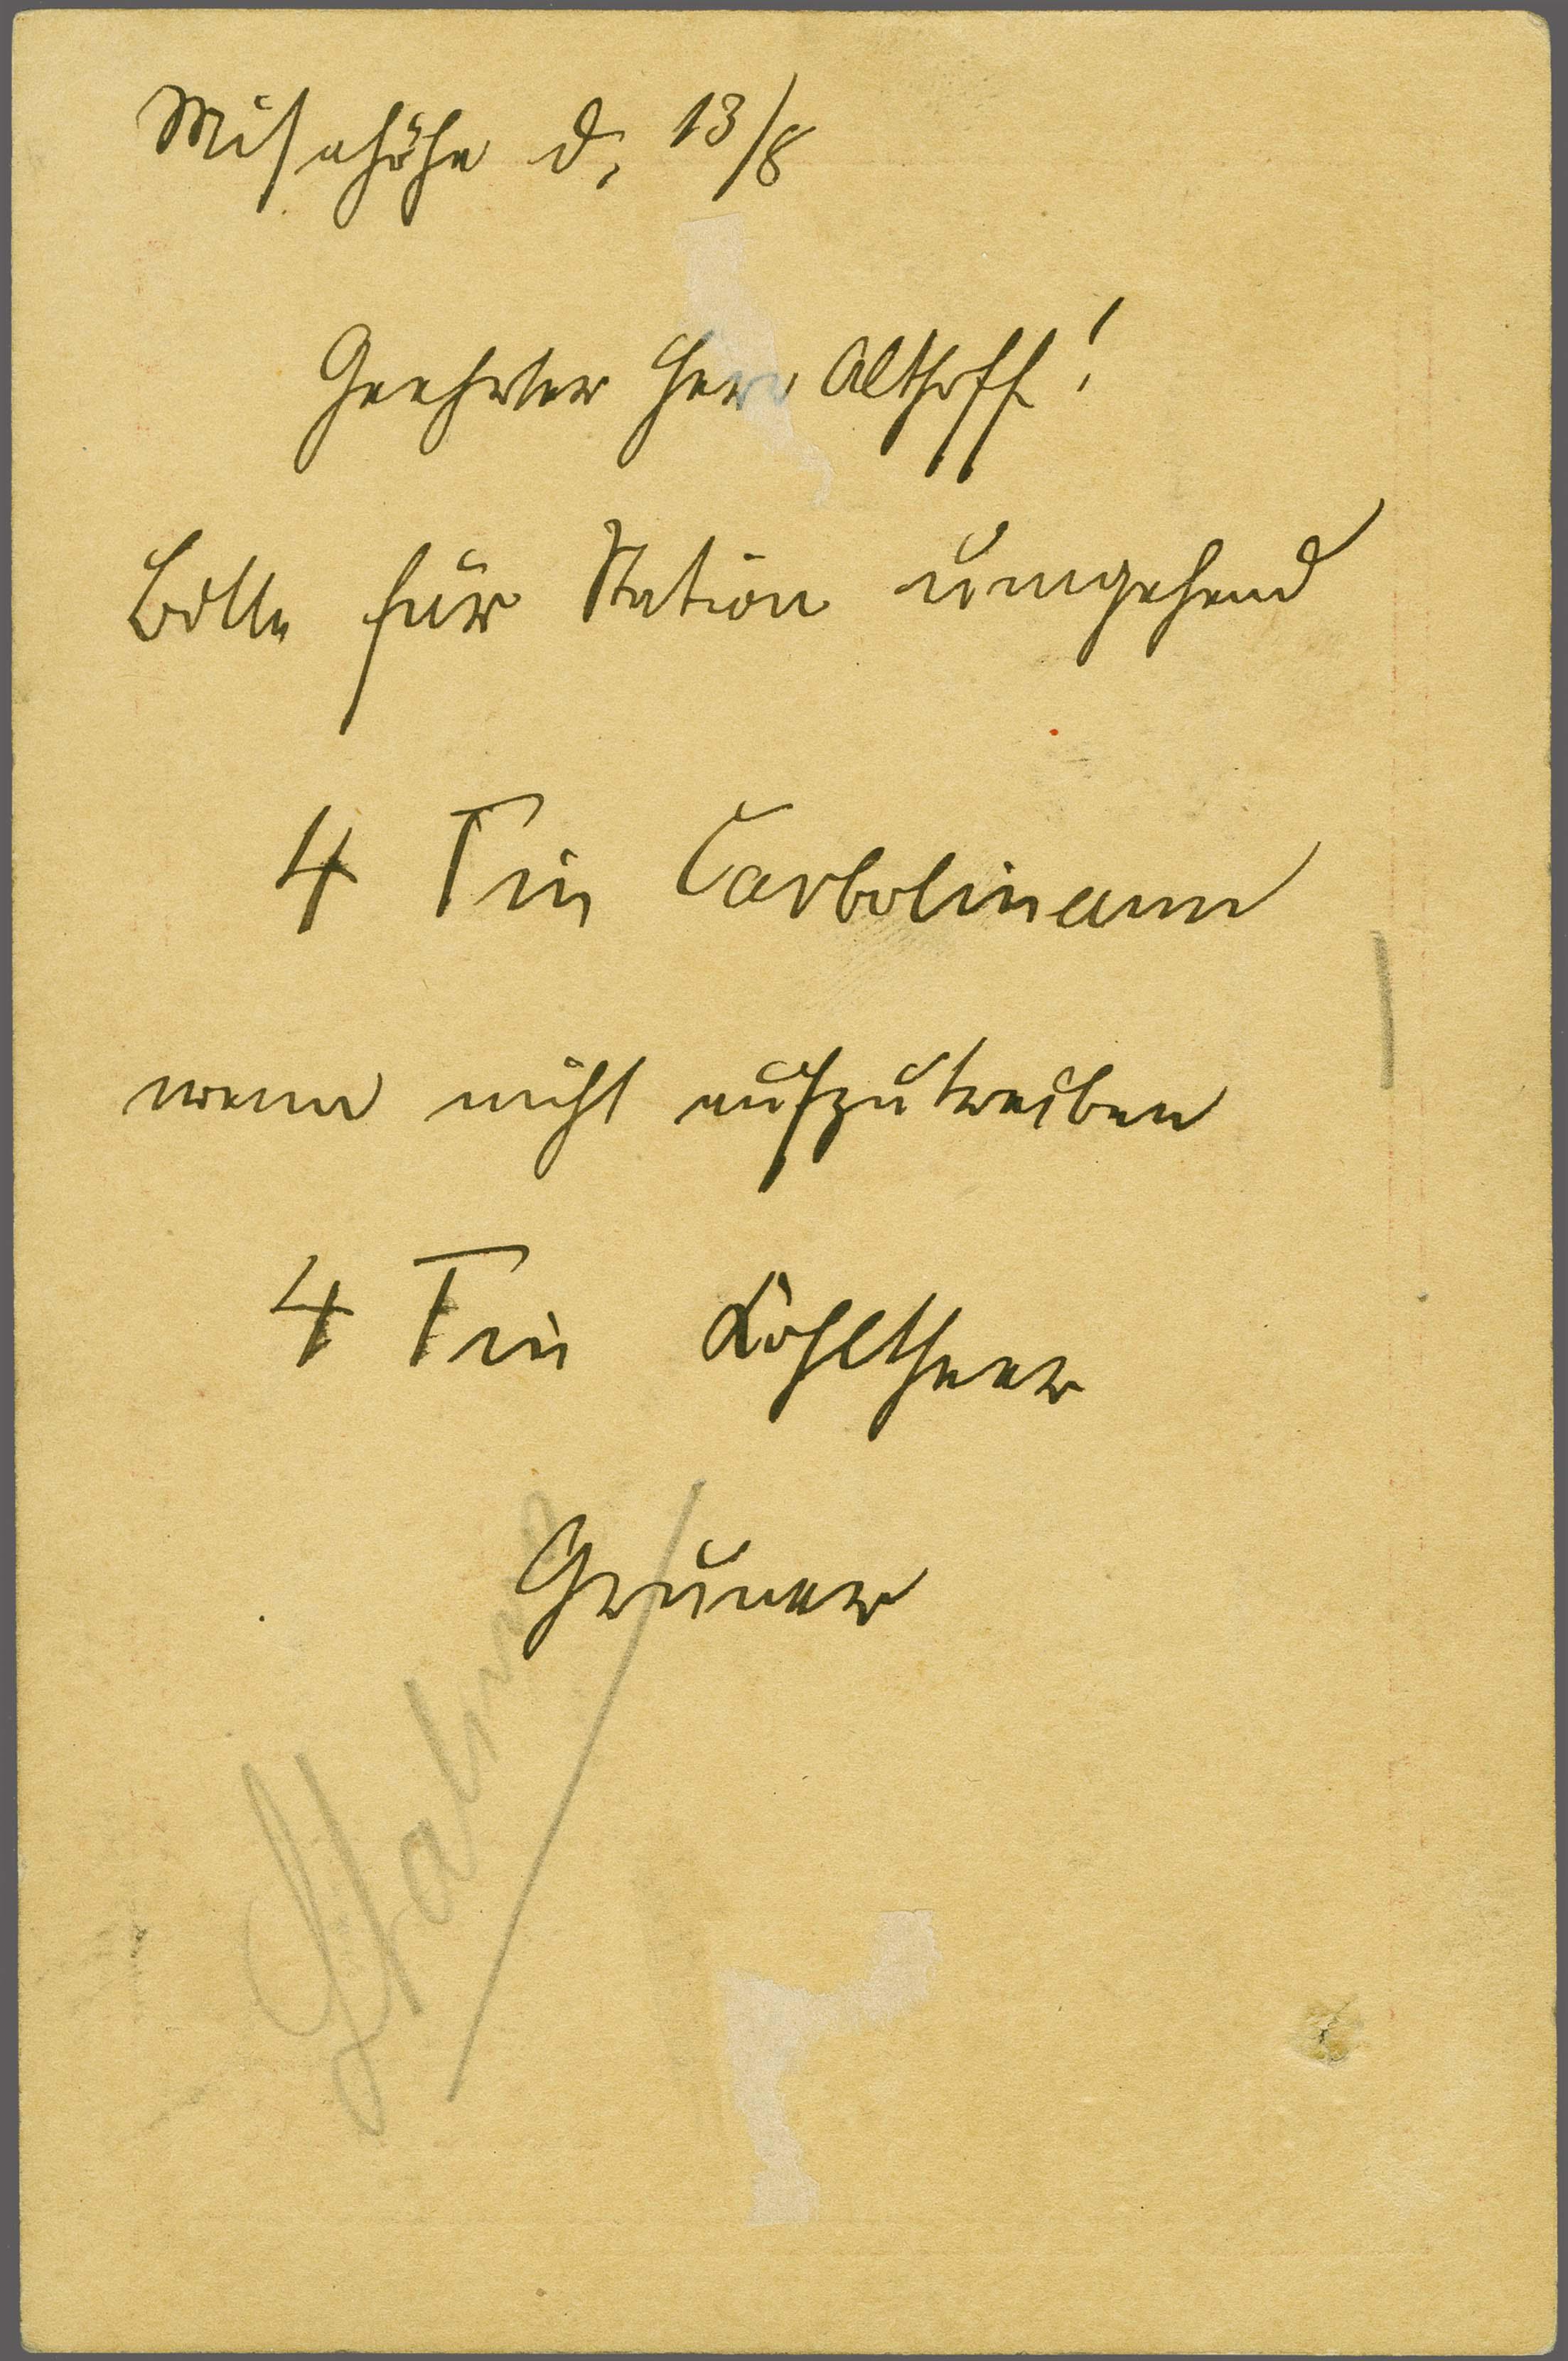 Misahöhe d. 13/8
Geehrter Herr Althoff!
Bitte für Station umgehend
4 Tin Carbolineum
wenn nicht aufzutreiben
4 Tin Kohltheer
Gruner